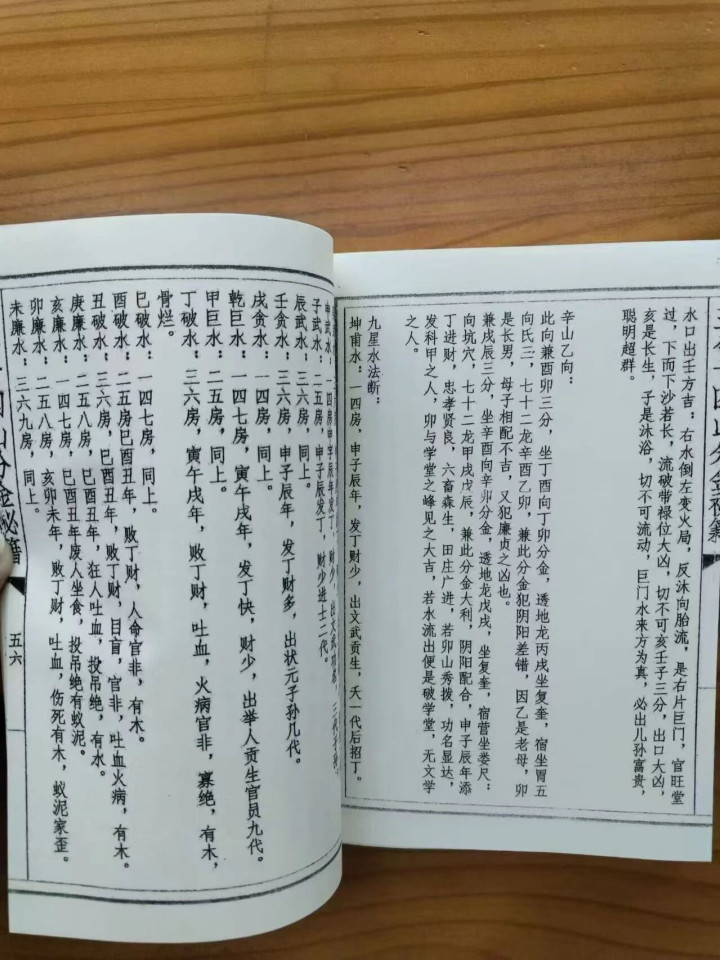 水口出壬方吉；右水倒左变火局，反沐向胎流，是右片巨门，官旺堂
过，下而下沙若长，流破带禄位大凶，切不可亥壬子三分，出口大凶，
亥是长生，子是沐浴，切不可流动，巨门水来方为真，必出儿孙富贵，
聪明超群。
辛山乙向：
此向兼酉卯三分，坐丁酉向丁卯分金，透地龙丙戌坐复奎，宿坐胃五
向氏三，七十二龙辛酉乙卯，兼此分金犯阴阳差错，因乙是老母，卯
是长男，母子相配不吉，又犯廉贞之凶也。
兼戌辰三分，坐辛酉向辛卯分金，透地龙戊戌，坐复奎，宿营坐娄尺：
向坑穴，七十二龙甲戌戊辰，兼此分金大利，阴阳配合，申子辰年添
丁进财，忠孝贤良，六畜森生，田庄广进，若卯山秀拨，功名显达，
发科甲之人，卯与学堂之峰见之大吉，若水流出便是破学堂，无文学
之人。
九星水法断：
坤甫水：一四房，申子辰年，发丁财少，出文武贡生，夭一代后招丁。
申武水：一四房申子辰年发丁，财少，出文武
子武水：二五房，申子辰发丁，财少进士二代。
辰武水：三六房，同上。
壬贪水：三六房，申子辰年，发丁财多，出状元子孙几代。
戌贪水：二五房，同上。
乾巨水：一四七房，寅午戌年，发丁快，财少，出举人贡生官员九代。
甲巨水：二五房，同上。
丁破水：三六房，寅午戌年，败丁财，吐血，火病官非，寡绝，有木，
骨烂。
巳破水：一四七房，同上。
酉破水：二五房巳酉丑年，败丁财，人命官非，有木。
丑破水：三六房巳酉丑年，败丁财，目盲，官非，吐血火病，有木。
庚廉水：一四七房，巳酉丑年，狂人吐血，投吊绝，有水。
亥廉水：二五八房，巳酉丑年废人坐食，投吊绝有蚁泥。
卯廉水：二五八房，亥卯未年，败丁财，吐血，伤死有木，蚁泥家歪。
未廉水：三六九房，同上。
四山分金秘籍
五六